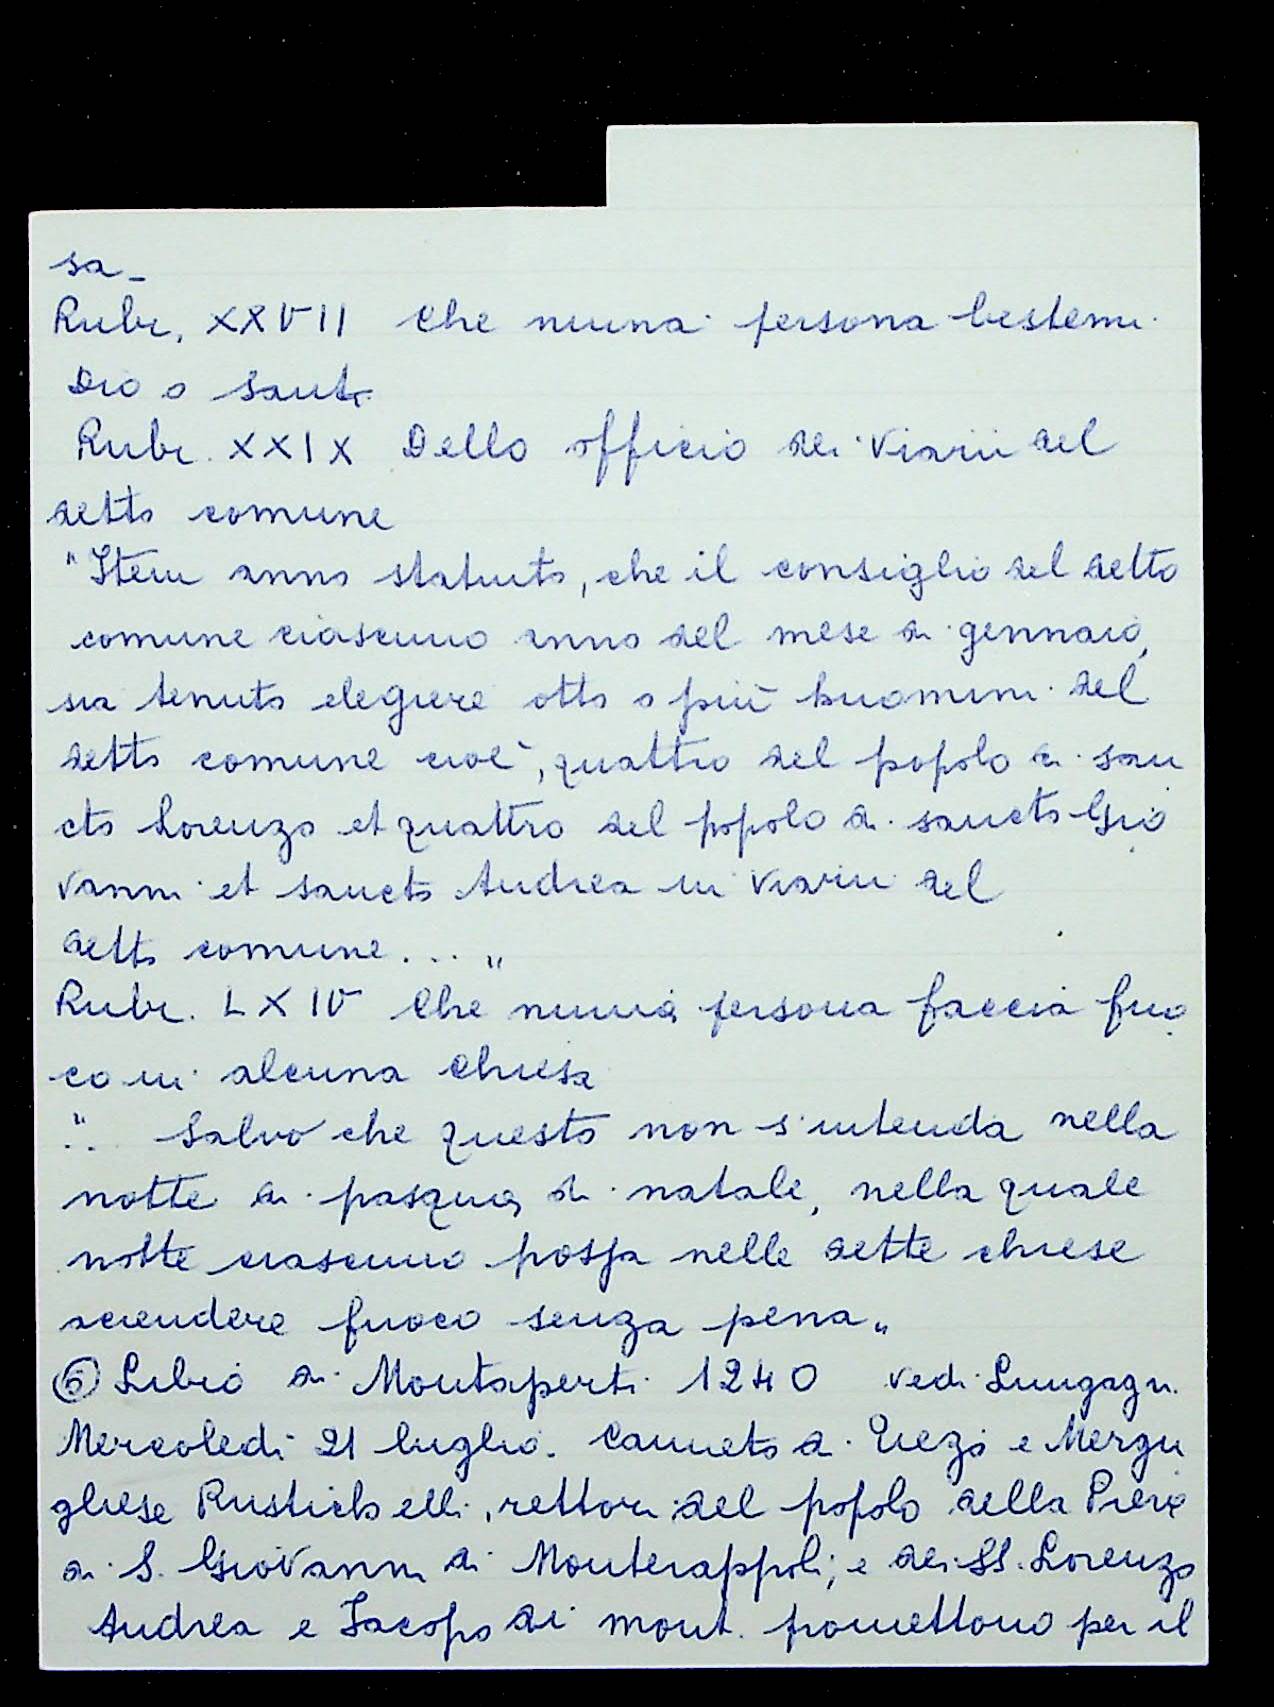 sa_
Rubr. XXVII Che niuna persona bestemi
Dio o Santi
Rubr. XXIX Dello officio dei Viarii del
detto comune
"Item anno statuto, che il consiglio del detto
comune ciascuno anno del mese di gennaio,
sia tenuto elegiere otto o più huomini del
detto comune cioè, quattro del popolo di san
cto Lorenzo et quattro del popolo di sancto Gio
vanni et sancto Andrea in Viarii del
detto comune... "
Rubr. LXIV Che niuna persona faccia fuo
co in alcuna chiesa
".. Salvo che questo non s'intenda nella
notte di pasqua di natale, nella quale
notte ciascuno possa nelle dette chiese
accendere fuoco senza pena"
⑥ Libro di Montaperti 1240 vedi Lungagn.
Mercoledi 21 luglio. Canneto di Riezo e Mergu
gliese Rustichelli, rettori del popolo della Pieve
di S. Giovanni di Monterappoli; e dei SS. Lorenzo
Andrea e Jacopo di mont. promettono per il